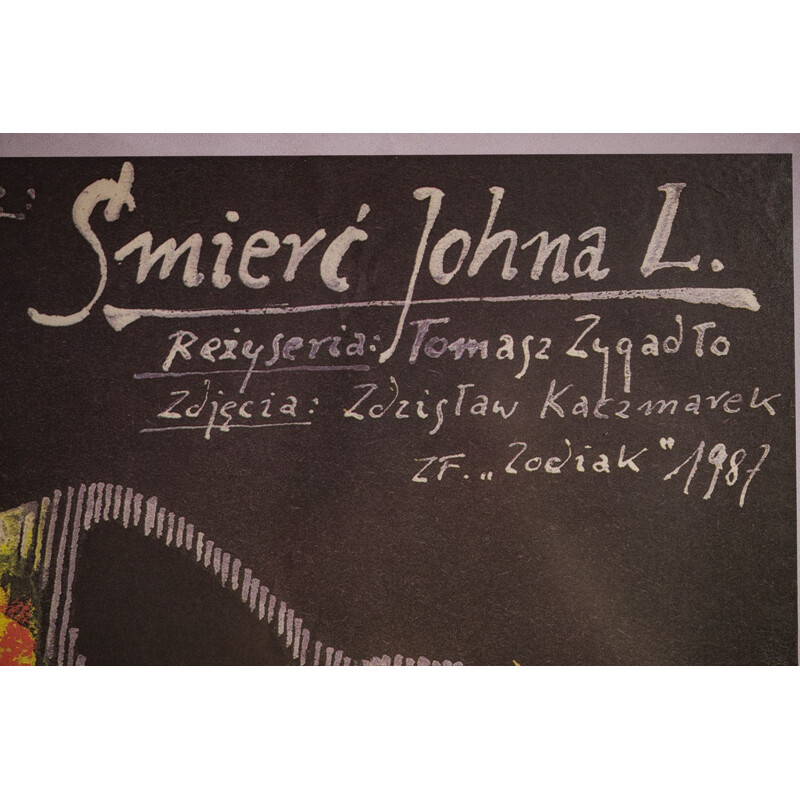 Śmierć Johna L.
Reżyseria: Tomasz Zygadło
Zdjęcia: Zdzisław Kaczmarek
ZF. „Zodiak" 1987